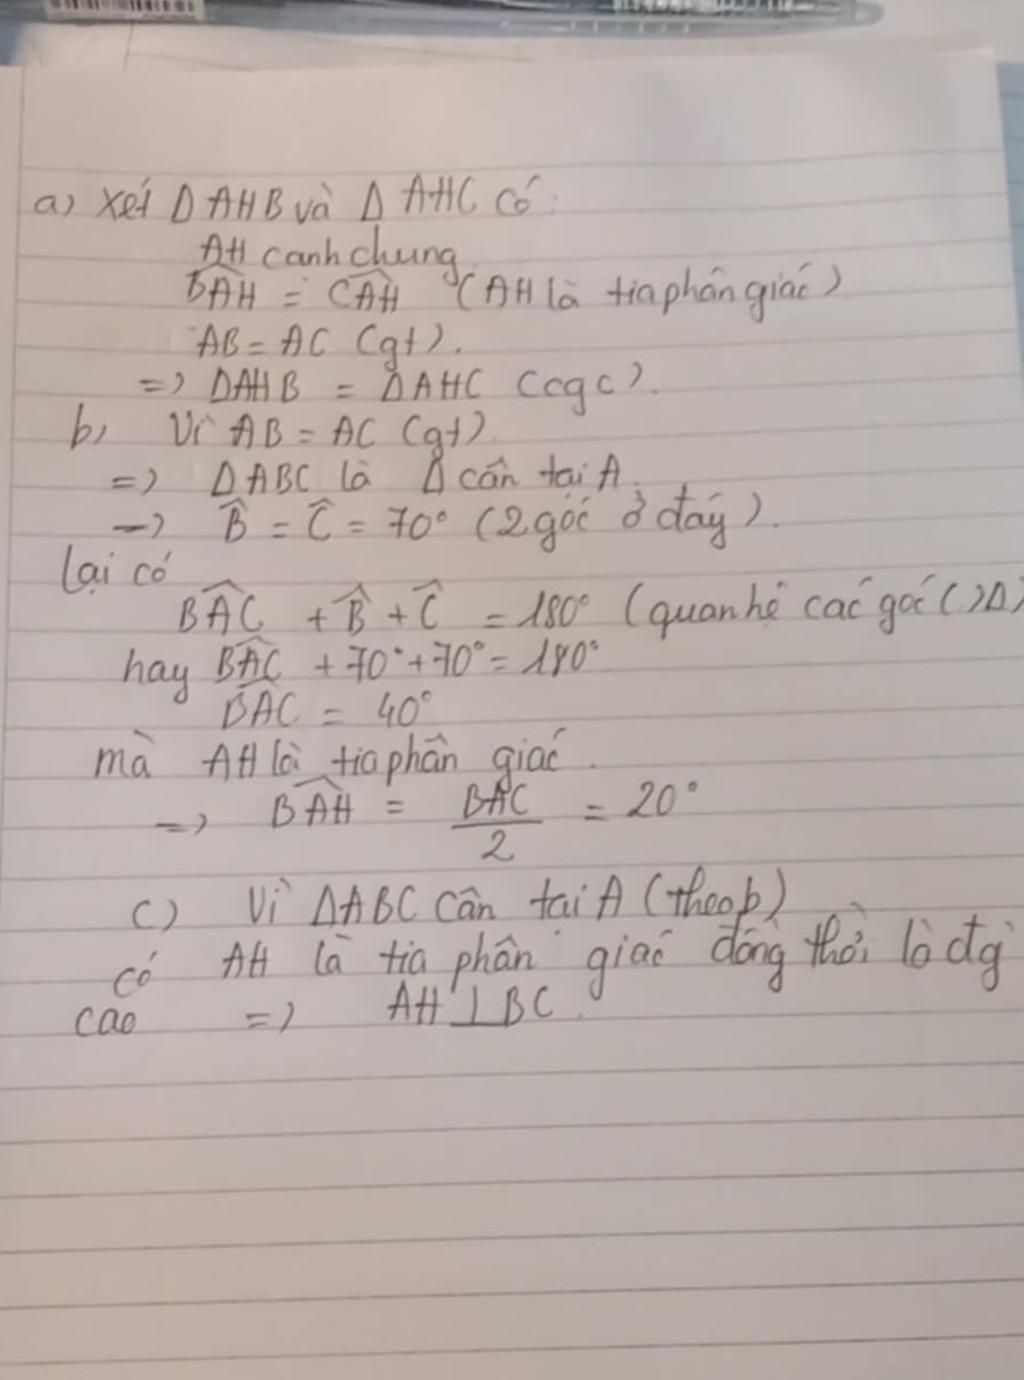 a) Xét Δ AHB và Δ AHC có:
AH canh chung
BAH = CAH (AH là tia phân giác)
AB = AC (gt).
=> ΔAHB = ΔAHC (cgc).
b, Vì AB = AC (gt)
=> ΔABC là Δ cân tại A.
-> B̂ = Ĉ = 70° (2 góc ở đáy).
Lại có
BAC + B̂ + Ĉ = 180° (quan hê các góc ( )Δ)
hay BAC + 70° + 70° = 180°
BAC = 40°
mà AH là tia phân giác.
=> BAH = BAC/2 = 20°
c) Vì ΔABC cân tại A (theo b)
có AH là tia phân giác đồng thời là đg
cao => AH ⊥ BC.